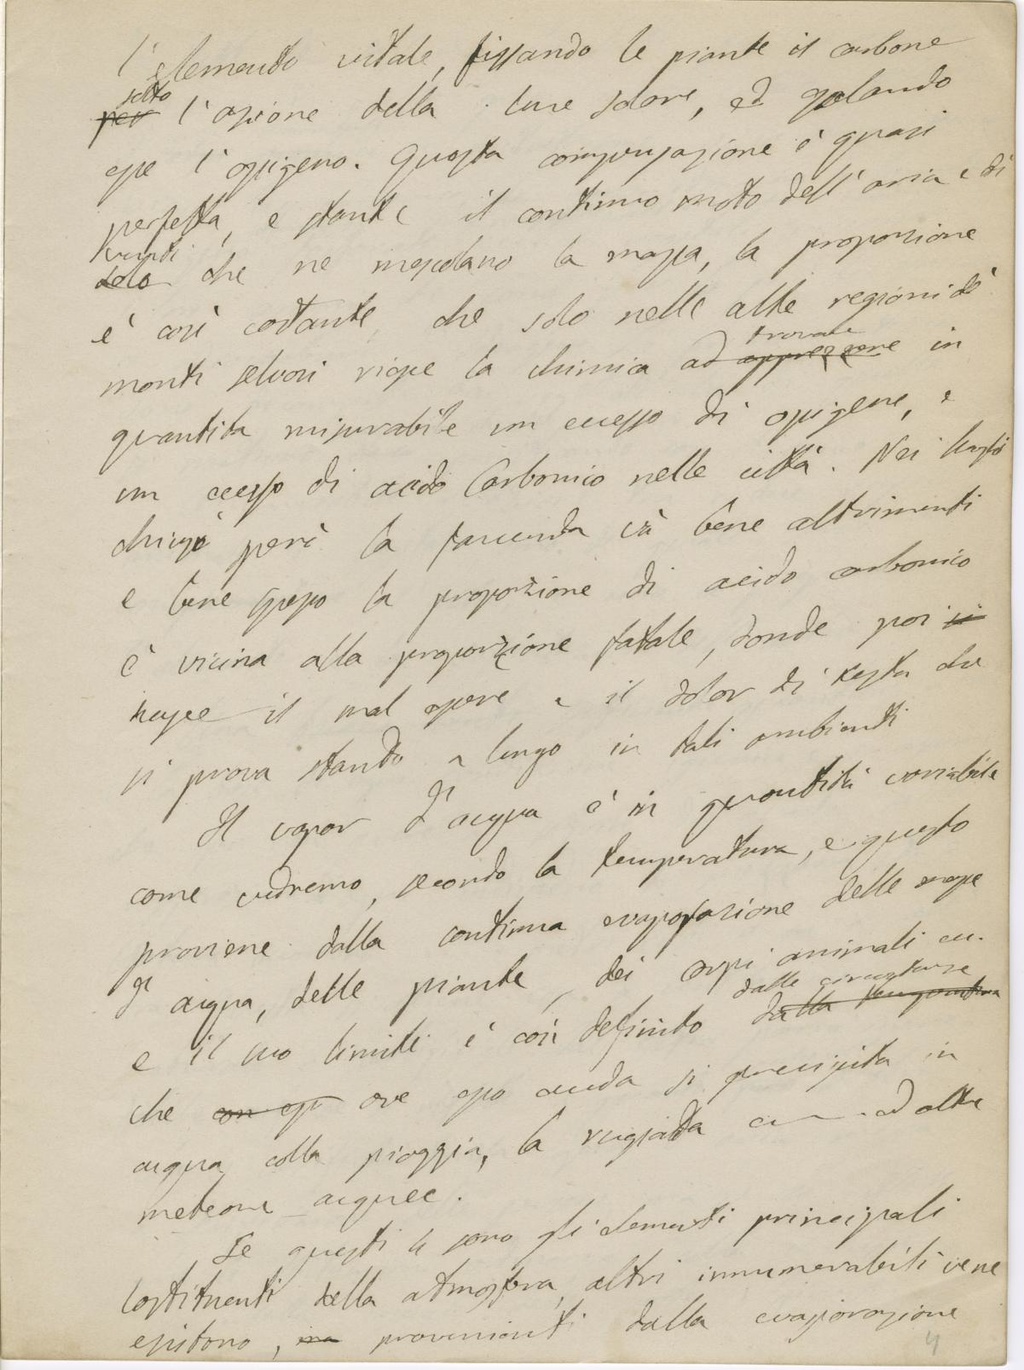 l'elemento vitale, fissando le piante il carbone
sotto
per l'azione della luce solare, ed esalando
esse l'ossigeno. Questa compensazione è quasi
perfetta, e stante il continuo moto dell'aria e di
venti
che ne mescolano la massa, la proporzione
è così costante che solo nelle alte regioni de'
trovare
monti selvosi riesce la chimica ad apprezzare in
quantità misurabile un eccesso di ossigene, e
un eccesso di acido Carbonico nelle città. Nei luoghi
chiusi però la faccenda và bene altrimenti
e bene spesso la proporzione di acido carbonico
è vicina alla proporzione fatale, donde poi si
nasce il mal essere e il dolor di testa che
si prova stando a lungo in tali ambienti
Il vapor d'acqua è in quantità variabile
come vedremo, secondo la temperatura, e questo
proviene dalla continua evaporazione delle masse
d'acqua, delle piante, dei corpi animali ec.
dalle
e il suo limite è così definito dalla temperatura
che ove esso ecceda si precipita in
acqua colla pioggia, la rugiada ed altre
meteore acquee.
Se questi sono gli elementi principali
costituenti della atmosfera, altri innumerabili ve ne
esistono, provenienti dalla evaporazione
4